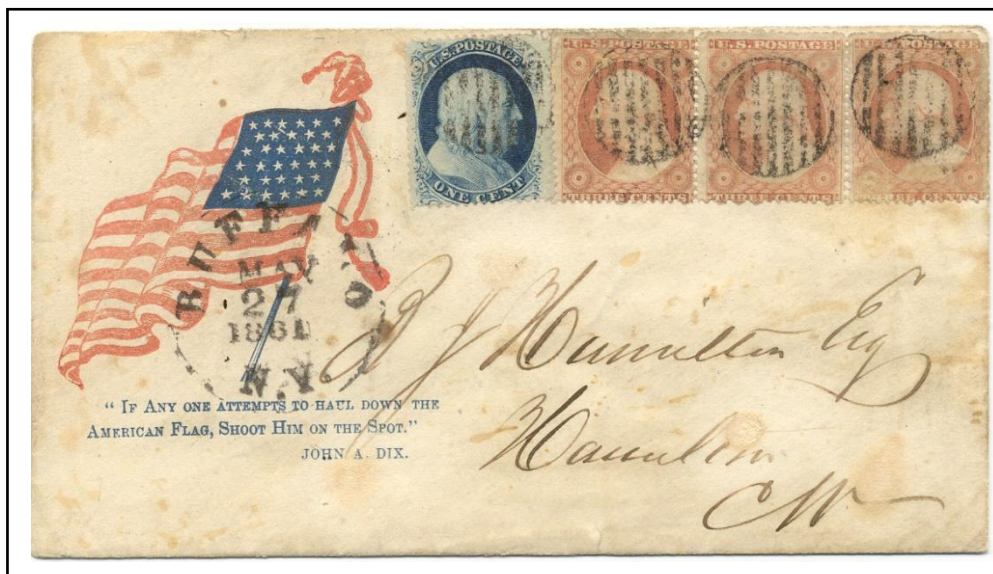 U.S. POSTAGE
ONE CENT
U.S. POSTAGE
THREE CENTS
U.S. POSTAGE
THREE CENTS
BUFFALO
MAY
27
1861
N.Y.
"IF ANY ONE ATTEMPTS TO HAUL DOWN THE
AMERICAN FLAG, SHOOT HIM ON THE SPOT."
JOHN A. DIX.
Hamilton Esq
Hamilton
CW